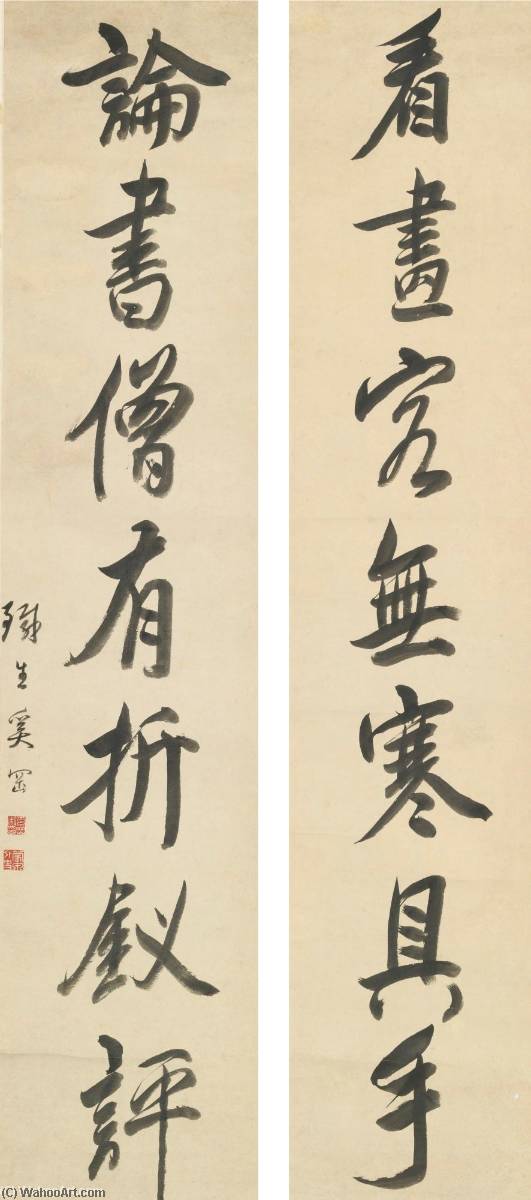 看畫客無寒具手
論書僧有折釵評
鐵生奚岡
(C) WahooArt.com